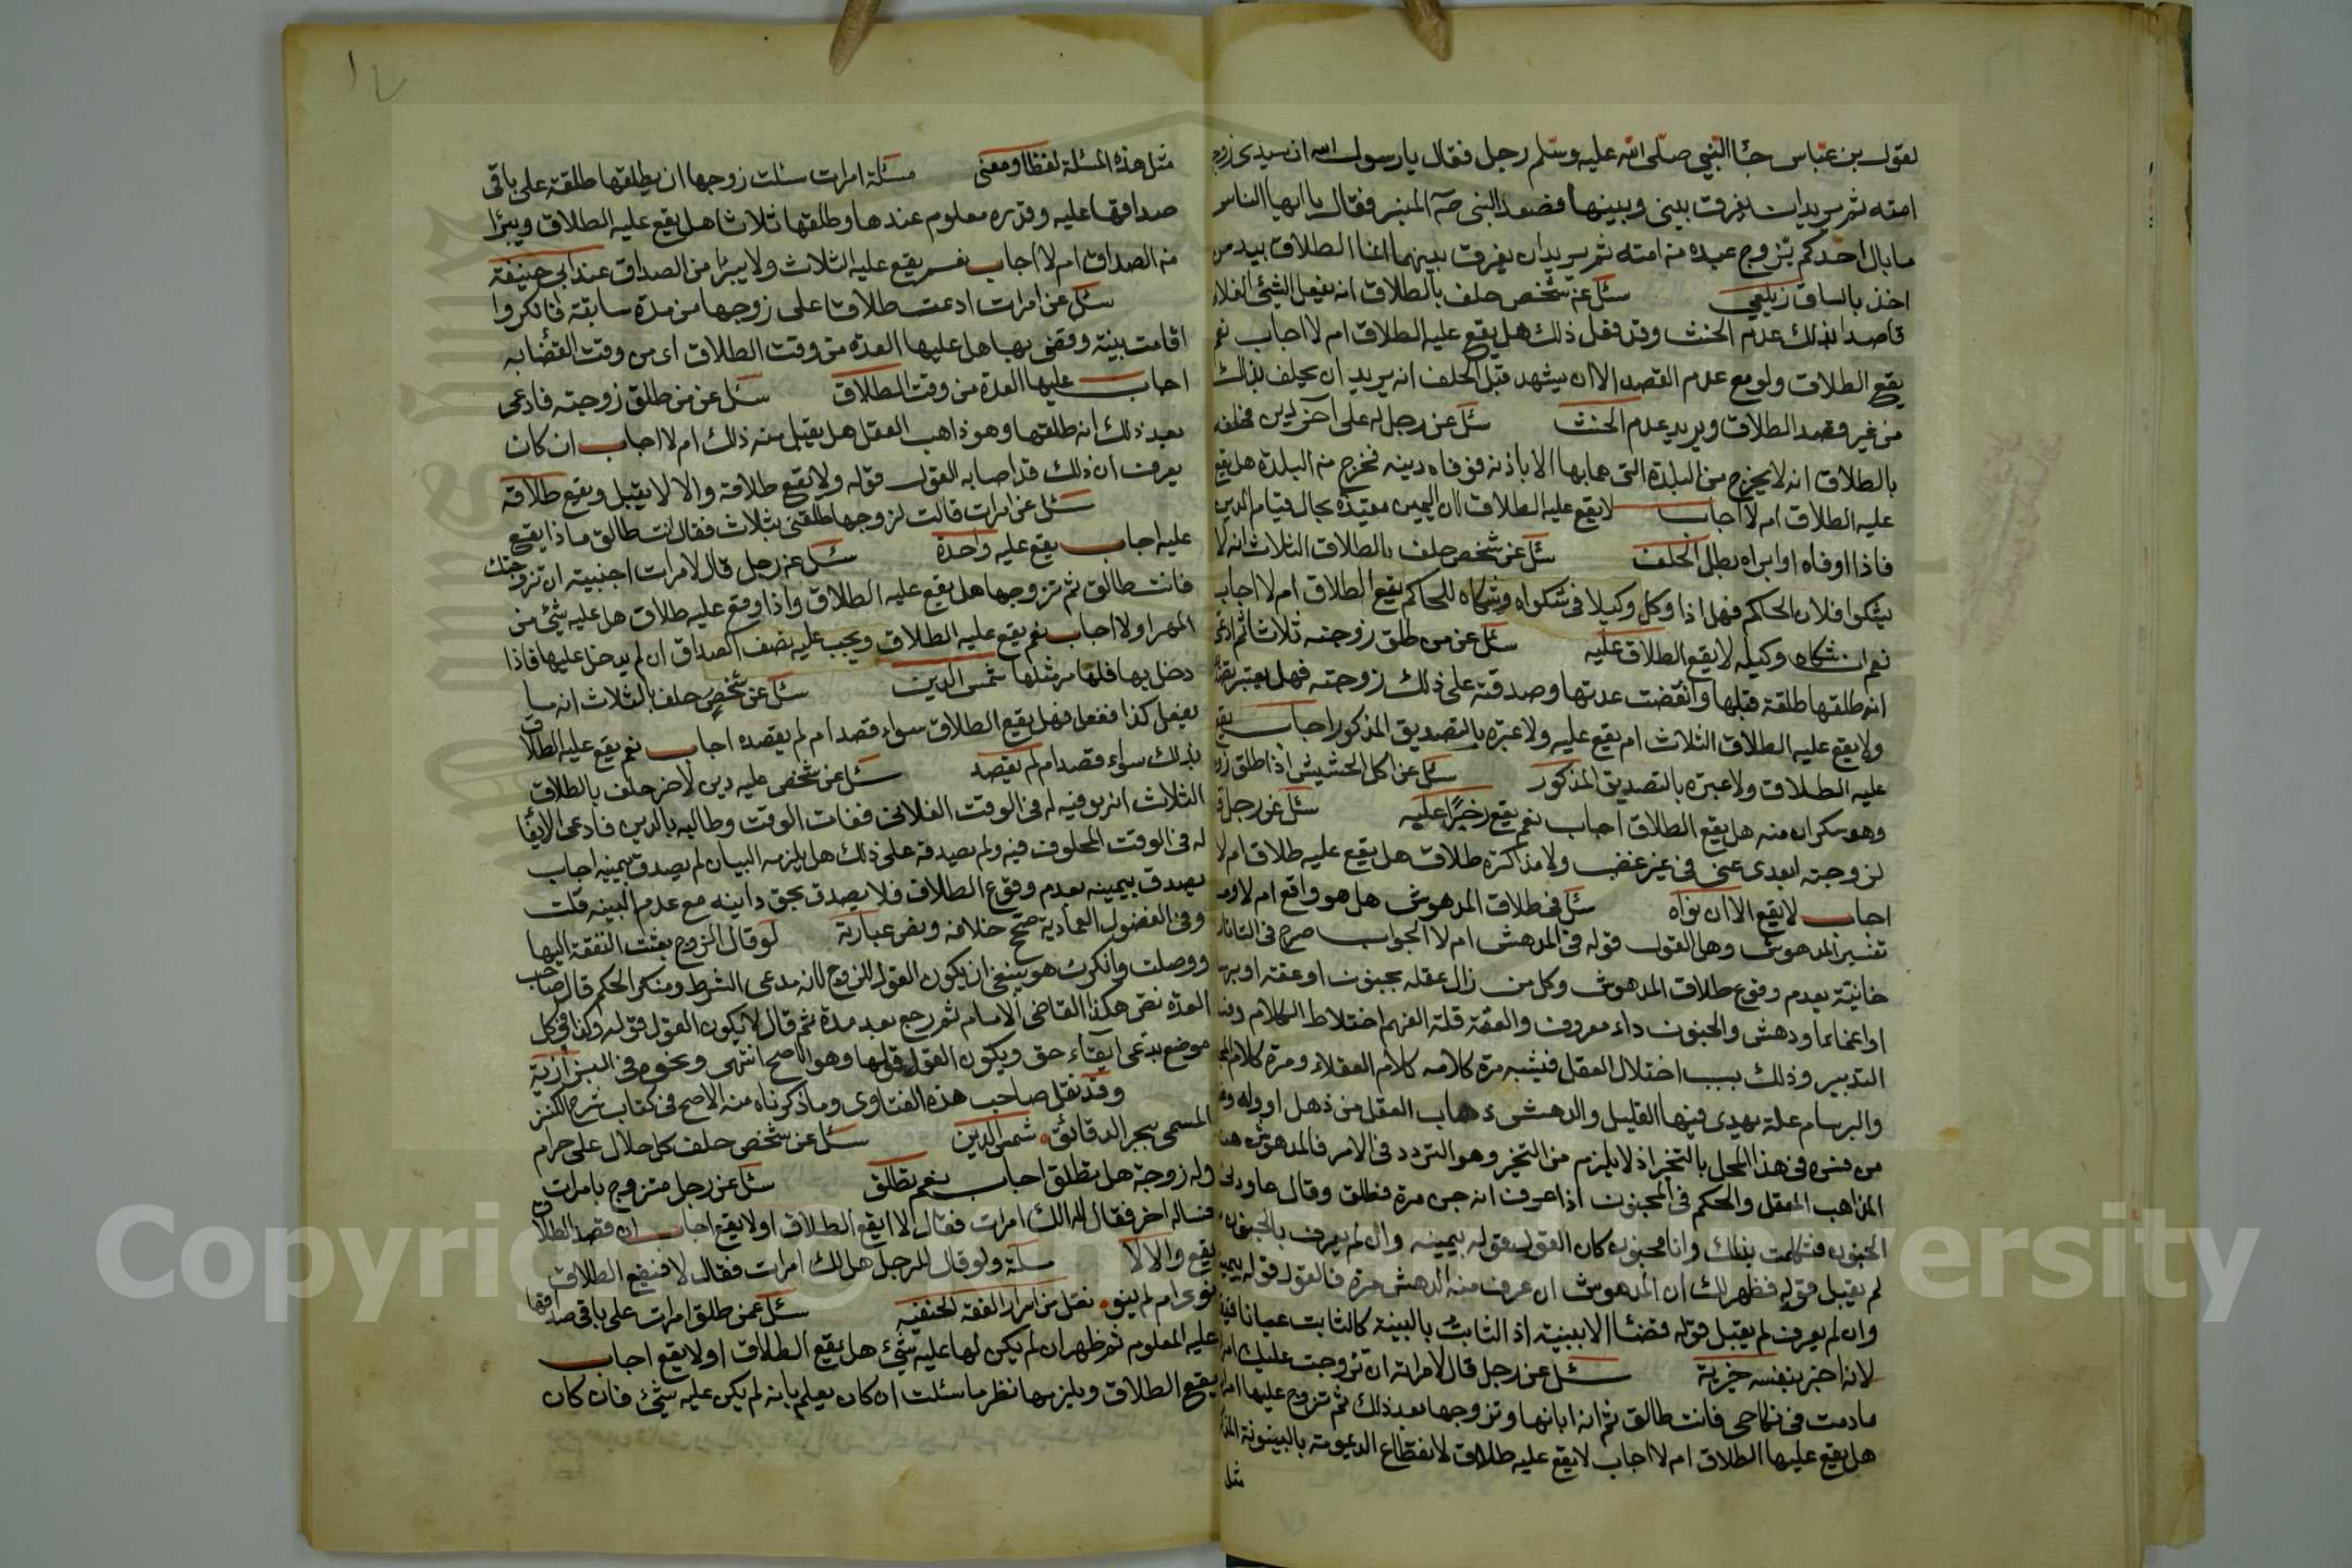 لقول بن عباس جئا النبي صلى الله عليه وسلم رجل فقال يا رسول الله ان سيدى زوج
امته ثم يريدان يفرق بينى وبينها فصعد النبى صآ المنبر فقال يا ايها الناس
ما بال احدكم يتزوج عبده منه امته ثم يريدان يفرق بينهما انما الطلاق بيد من
اخذ بالساق زيلعي سئل عن شخص حلف بالطلاق انه يفعل الشئ الفلان
قاصدا بذلك عدم الحنث وقد فعل ذلك هل يقع عليه الطلاق ام لا اجاب نعم
يقع الطلاق ولو مع عدم القصد الا ان يشهد قبل الحلف انه يريد ان يحلف بذلك
من غير قصد الطلاق ويريد عدم الحنث سئل عن رجل له على آخر دين فحلفه
بالطلاق انه لا يخرج من البلدة التى هما بها الا باذنه فوفاه دينه فخرج منه البلدة هل يقع
عليه الطلاق ام لا اجاب لا يقع عليه الطلاق لان اليمين مقيدة بحال قيام الدين
فاذا اوفاه او ابراه بطل الحلف سئل عن شخص حلف بالطلاق الثلاث انه لا
يشكوا فلان الحاكم فهل اذا وكل وكيلا فى شكواه وشكاه للحاكم يقع الطلاق ام لا اجاب
نعم ان شكاه وكيله لا يقع الطلاق عليه سئل عن من طلق زوجته ثلاث ثم ادعى
انه طلقها طلقة قبلها وانقضت عدتها وصدقته على ذلك زوجته فهل يعتبر
ولا يقع عليه الطلاق الثلاث ام يقع عليه ولا عبره بالتصديق المذكور اجاب يقع
عليه الطلاق ولا عبره بالتصديق المذكور سئل عن اكل الحشيش اذا طلق
وهو سكران منه هل يقع الطلاق اجاب نعم يقع زجرًا عليه سئل عن رجل
لزوجته ابعدى عنى فى غير غضب ولا مذاكرة طلاق هل يقع عليه طلاق ام لا
اجاب لا يقع الا ان نواه سئل فى طلاق المدهوش هل هو واقع ام لا
تفسير المدهوش وهل القول قوله فى المدهش ام لا الجواب صرح فى التاتار
خانيّة بعدم وقوع طلاق المدهوش وكل من زال عقله بجنون او عته او
او اغماءا ودهش والجنون داء معروف والعته قلة الفهم اختلاط الكلام
التدبير وذلك بسبب اختلال العقل فيشبه مرة كلامه كلام العقلاء ومرة كلام
والبرسام علة يهذى فيها القليل والدهش ذهاب العقل من ذهل او وله
من فسره فى هذا المحل بالتحير اذ لا يلزم من التحير وهو التردد فى الامر فالمدهوش
الذاهب العقل والحكم فى المجنون اذا عرف انه جن مرة فطلق وقال عاودنى
الجنون فتكلمت بذلك وانا مجنون كان القول قوله بيمينه وان لم يعرف بالجنون
لم يقبل قوله فظهر لك ان المدهوش ان عرف منه الدهش مرة فالقول قوله
وان لم يعرف لم يقبل قوله قضئا الا ببينة اذ الثابت بالبينة كالثابت عيانا
لانه اخبر بنفسه خيرية سئل عن رجل قال لامراته ان تزوجت عليك
ما دمت فى نكاحى فانت طالق ثم انه ابانها وتزوجها بعد ذلك ثم تزوج عليها
هل يقع عليها الطلاق ام لا اجاب لا يقع عليه طلاق لانقطاع الديمومة بالبينونة
مثل
مثل هذه المسئلة لفظا ومعنى مسئلة امرات سئلت زوجها ان يطلقها طلقة على باقى
صداقها عليه وقدره معلوم عندها وطلقها ثلاثا هل يقع عليه الطلاق ويبرا
منه الصداق ام لا اجاب نعم يقع عليه الثلاث ولا يبرا من الصداق عند ابى حنيفة
سئل عن امرات ادعت طلاقا على زوجها من مدة سابقة فانكروا
اقامت بينة وقضى بها هل عليها العدة من وقت الطلاق اى من وقت القضا به
اجاب عليها العدة من وقت الطلاق سئل عن من طلق زوجته فادعى
بعد ذلك انه طلقها وهو ذاهب العقل هل يقبل منه ذلك ام لا اجاب ان كان
يعرف ان ذلك قد اصابه القول قوله ولا يقع طلاقه والا لا يقبل ويقع طلاقه
سئل عن امرات قالت لزوجها طلقنى بثلاث فقال انت طالق ماذا يقع
عليه اجاب يقع عليه واحدة سئل عن رجل قال لامرات اجنبية ان تزوجتك
فانت طالق ثم تزوجها هل يقع عليه الطلاق واذا وقع عليه طلاق هل عليه شئ من
المهر اولا اجاب نعم يقع عليه الطلاق ويجب عليه نصف الصداق ان لم يدخل عليها فاذا
دخل بها فلها مهر مثلها شمس الدين سئل عن شخص حلف بالثلاث انه ما
يفعل كذا ففعل فهل يقع الطلاق سواء قصد ام لم يقصده اجاب نعم يقع عليه الطلاق
بذلك سواء قصد ام لم يقصد سئل عن شخص عليه دين لاخر حلف بالطلاق
الثلاث انه يوفيه له فى الوقت الفلانى ففات الوقت وطالبه بالدين فادعى الايفا
له فى الوقت المحلوف فيه ولم يصدقه على ذلك هل يلزمه البيان لم يصدق بيمينه اجاب
يصدق بيمينه بعدم وقوع الطلاق فلا يصدق بحق داينه مع عدم البينه قلت
وفى الفصول العمادية صحح خلافه ونص عبارته لو قال الزوج بعثت النفقة اليها
ووصلت وانكرت هو ينبغى ان يكون القول للزوج لانه مدعى الشرط ومنكر الحكم قال صاحب
العده نص هكذا القاضى الامام ثم رجع بعد مدة ثم قال لا يكون القول قوله وكذا فى كل
موضع يدعى ايفاء حق ويكون القول قولها وهو الاصح انتهى ونحوه فى البزازية
وقد نقل صاحب هذه الفتاوى وما ذكرناه منه الاصح فى كتاب شرح الكنز
المسمى ببحر الدقائق شمس الدين سئل عن شخص حلف كل حلال على حرام
وله زوجة هل تطلق اجاب نعم تطلق سئل عن رجل متزوج بامرات
فساله اخر فقال له الك امرات فقال لا ايقع الطلاق او لا يقع اجاب ان قصد الطلاق
يقع والا لا مسئلة ولو قال للرجل هل لك امرات فقال لا فيقع الطلاق
نوى ام لم ينو نقل من اسرار الفقه الحنفيه سئل عمن طلق امرات على باقى صداقها
عليه المعلوم ثم ظهر ان لم يكن لها عليه شئ هل يقع الطلاق او لا يقع اجاب
يقع الطلاق ويلزمها نظر ما سئلت ان كان يعلم بانه لم يكن عليه شئ فان كان
Copyright © King Saud University